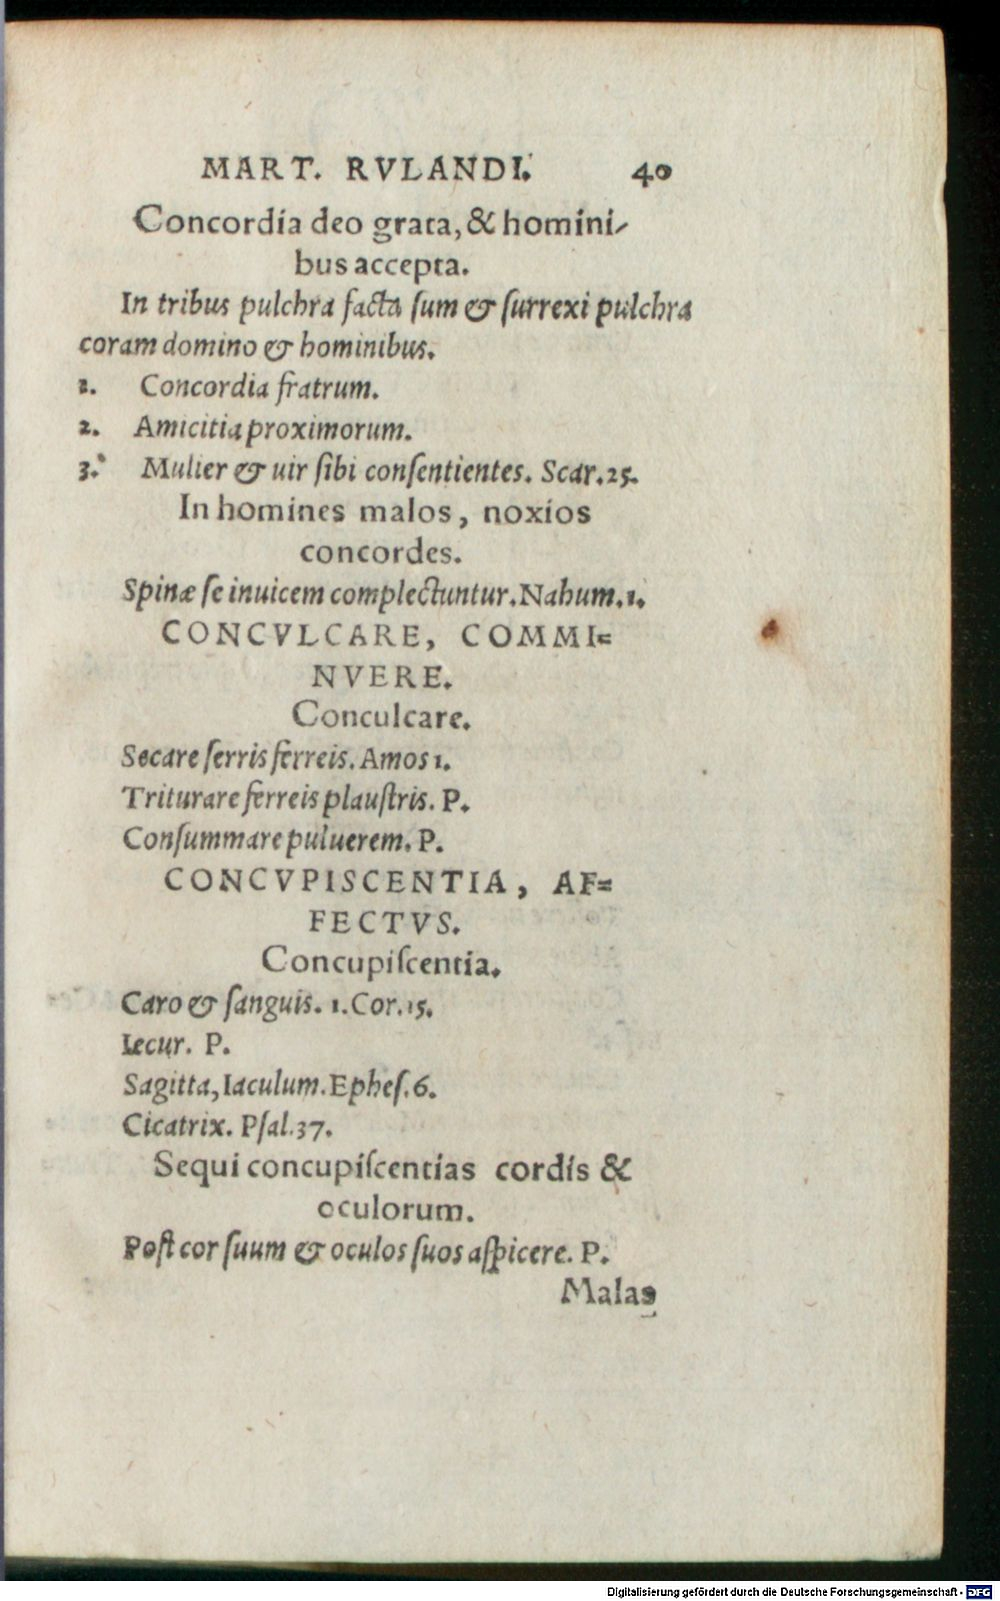 MART. RVLANDI. 40
Concordia deo grata, & homini-
bus accepta.
In tribus pulchra facta ſum & ſurrexi pulchra
coram domino & hominibus.
1. Concordia fratrum.
2. Amicitia proximorum.
3. Mulier & uir ſibi conſentientes. Scar. 25.
In homines malos, noxios
concordes.
Spinæ ſe inuicem complectuntur. Nahum. 1.
CONCVLCARE, COMMI=
NVERE.
Conculcare.
Secare ſerris ferreis. Amos 1.
Triturare ferreis plauſtris. P.
Conſummare puluerem. P.
CONCVPISCENTIA, AF=
FECTVS.
Concupiſcentia.
Caro & ſanguis. 1. Cor. 15.
Iecur. P.
Sagitta, Iaculum. Epheſ. 6.
Cicatrix. Pſal. 37.
Sequi concupiſcentias cordis &
oculorum.
Poſt cor ſuum & oculos ſuos aſpicere. P.
Malas
Digitalisierung gefördert durch die Deutsche Forschungsgemeinschaft - DFG